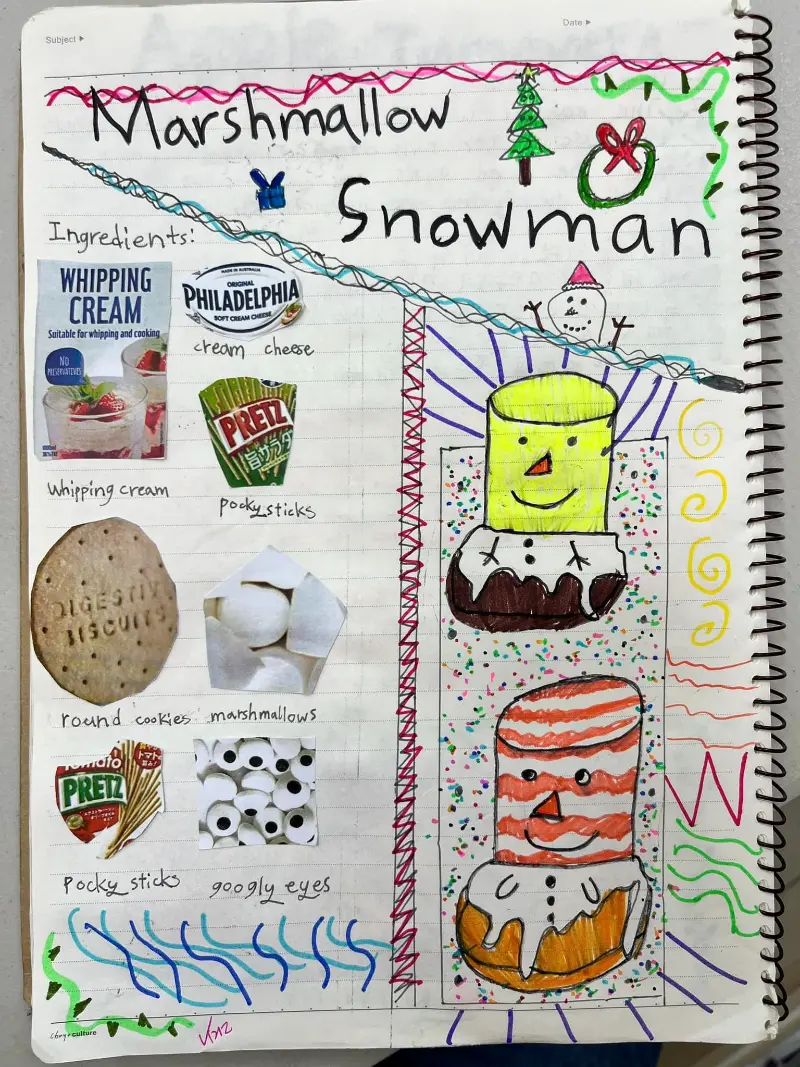 Subject ▶
Date ▶
Marshmallow
Snowman
Ingredients:
WHIPPING
CREAM
Suitable for whipping and cooking
NO
PRESERVATIVES
MADE IN AUSTRALIA
ORIGINAL
PHILADELPHIA
SOFT CREAM CHEESE
cream cheese
PRETZ
旨サラダ
Whipping cream
pocky sticks
DIGESTIV
BISCUITS
round cookies
marshmallows
Tomato
PRETZ
トマト
Pocky sticks
googly eyes
culture